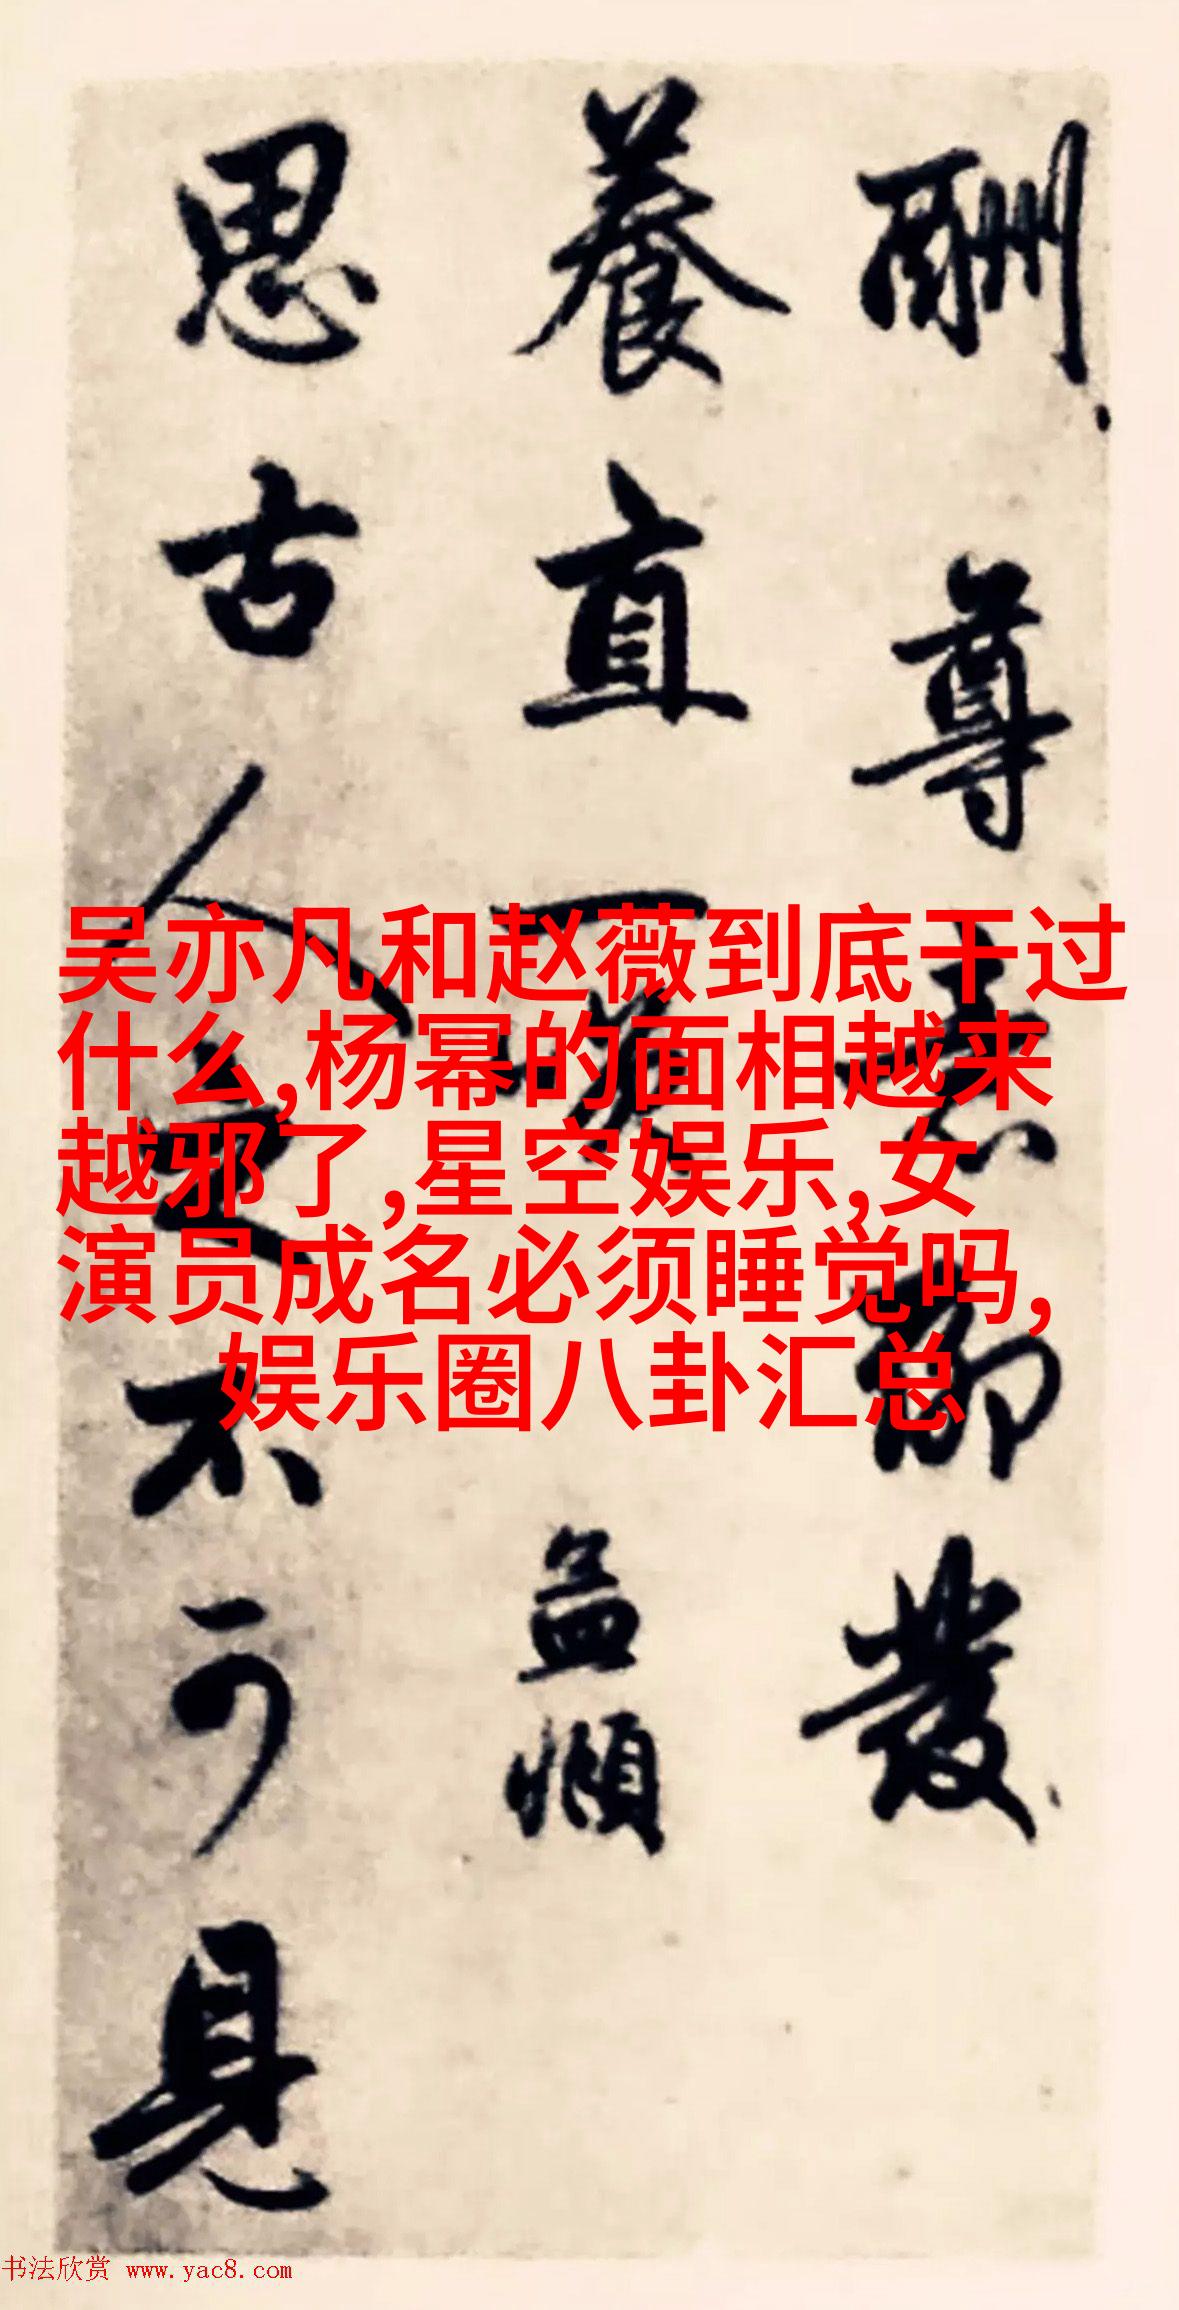 酬尊意聊發
養直一咲益順
思古人兮不可見
吴亦凡和赵薇到底干过
什么,杨幂的面相越来
越邪了,星空娱乐,女
演员成名必须睡觉吗,
娱乐圈八卦汇总
书法欣赏 www.yac8.com